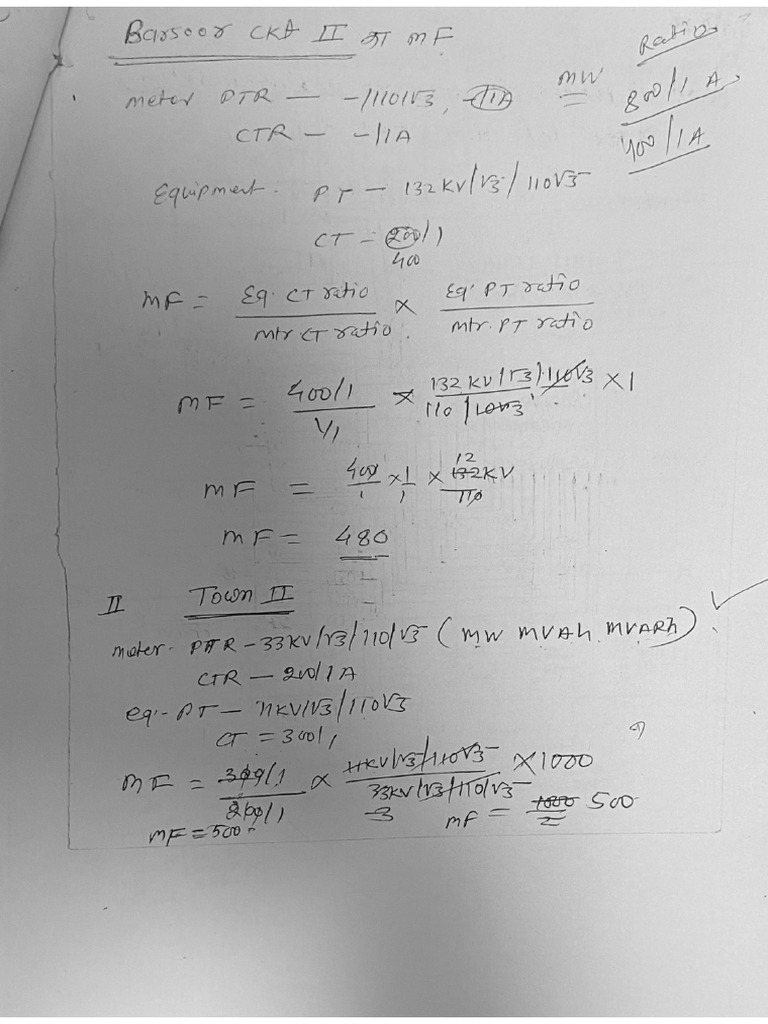 Barsoor CKt II का MF
Ratio
meter PTR — -/110/√3, -/1A MW 800/1 A
CTR — -/1A 400/1A
Equipment. PT — 132KV/√3/110√3
CT = 200/1
400
MF = Eq. CT ratio / Mtr. CT ratio × Eq. PT ratio / Mtr. PT ratio
MF = 400/1 / 1/1 × 132KV/√3/110√3 / 110/110√3 × 1
MF = 400/1 × 1/1 × 132KV/110 12
MF = 480
II Town II
meter - PTR - 33KV/√3/110/√3 (MW MVAh MVARh)
CTR — 200/1A
eq:- PT — 11KV/√3/110√3
CT = 300/1
MF = 300/1 / 200/1 × 11KV/√3/110√3 / 33KV/√3/110/√3 × 1000
3 MF = 1000/2 500
MF = 500